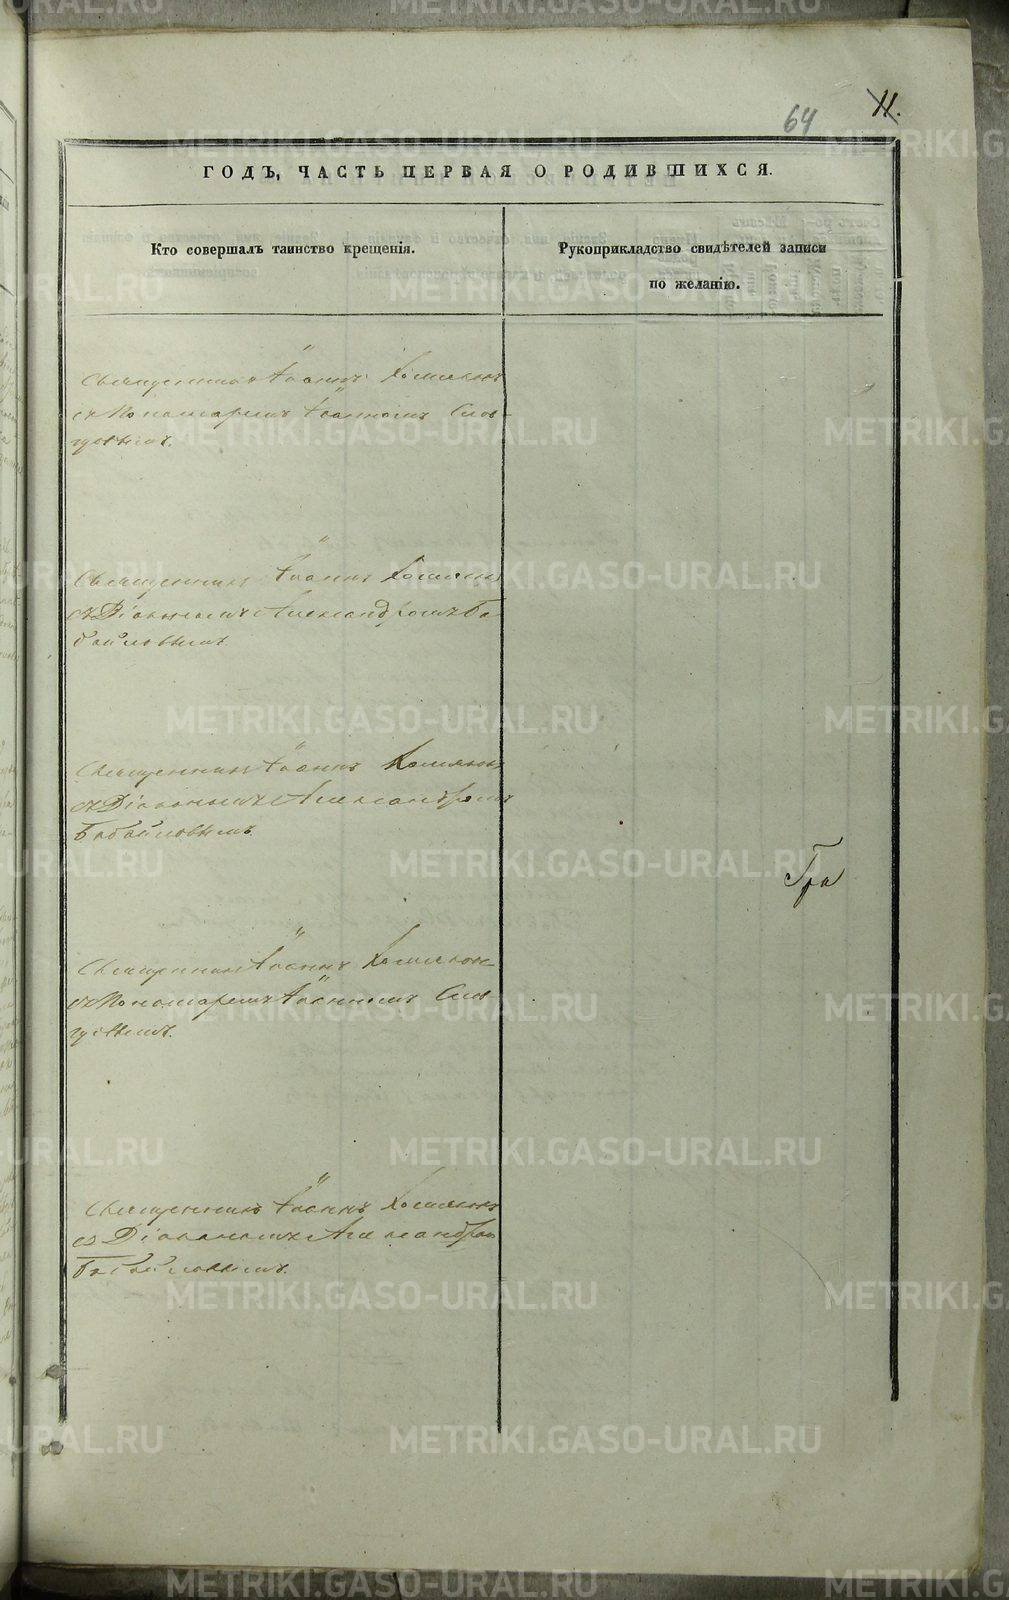 64 11.
ГОДЪ, ЧАСТЬ ПЕРВАЯ О РОДИВШИХСЯ.
Кто совершалъ таинство крещенія.
Рукоприкладство свидѣтелей записи
по желанію.
Священникъ Іоаннъ Хомяковъ
съ Пономаремъ Іоанномъ Слов-
цовымъ.
Священникъ Іоаннъ Хомяковъ
съ Діакономъ Александромъ Ба
байловымъ.
Священникъ Іоаннъ Хомяковъ
съ Діакономъ Александромъ
Бабайловымъ.
Священникъ Іоаннъ Хомяковъ
съ Пономаремъ Іоанномъ Слов
цовымъ.
Священникъ Іоаннъ Хомяковъ
съ Діакономъ Александромъ
Бабайловымъ.
Гра
METRIKI.GASO-URAL.RU